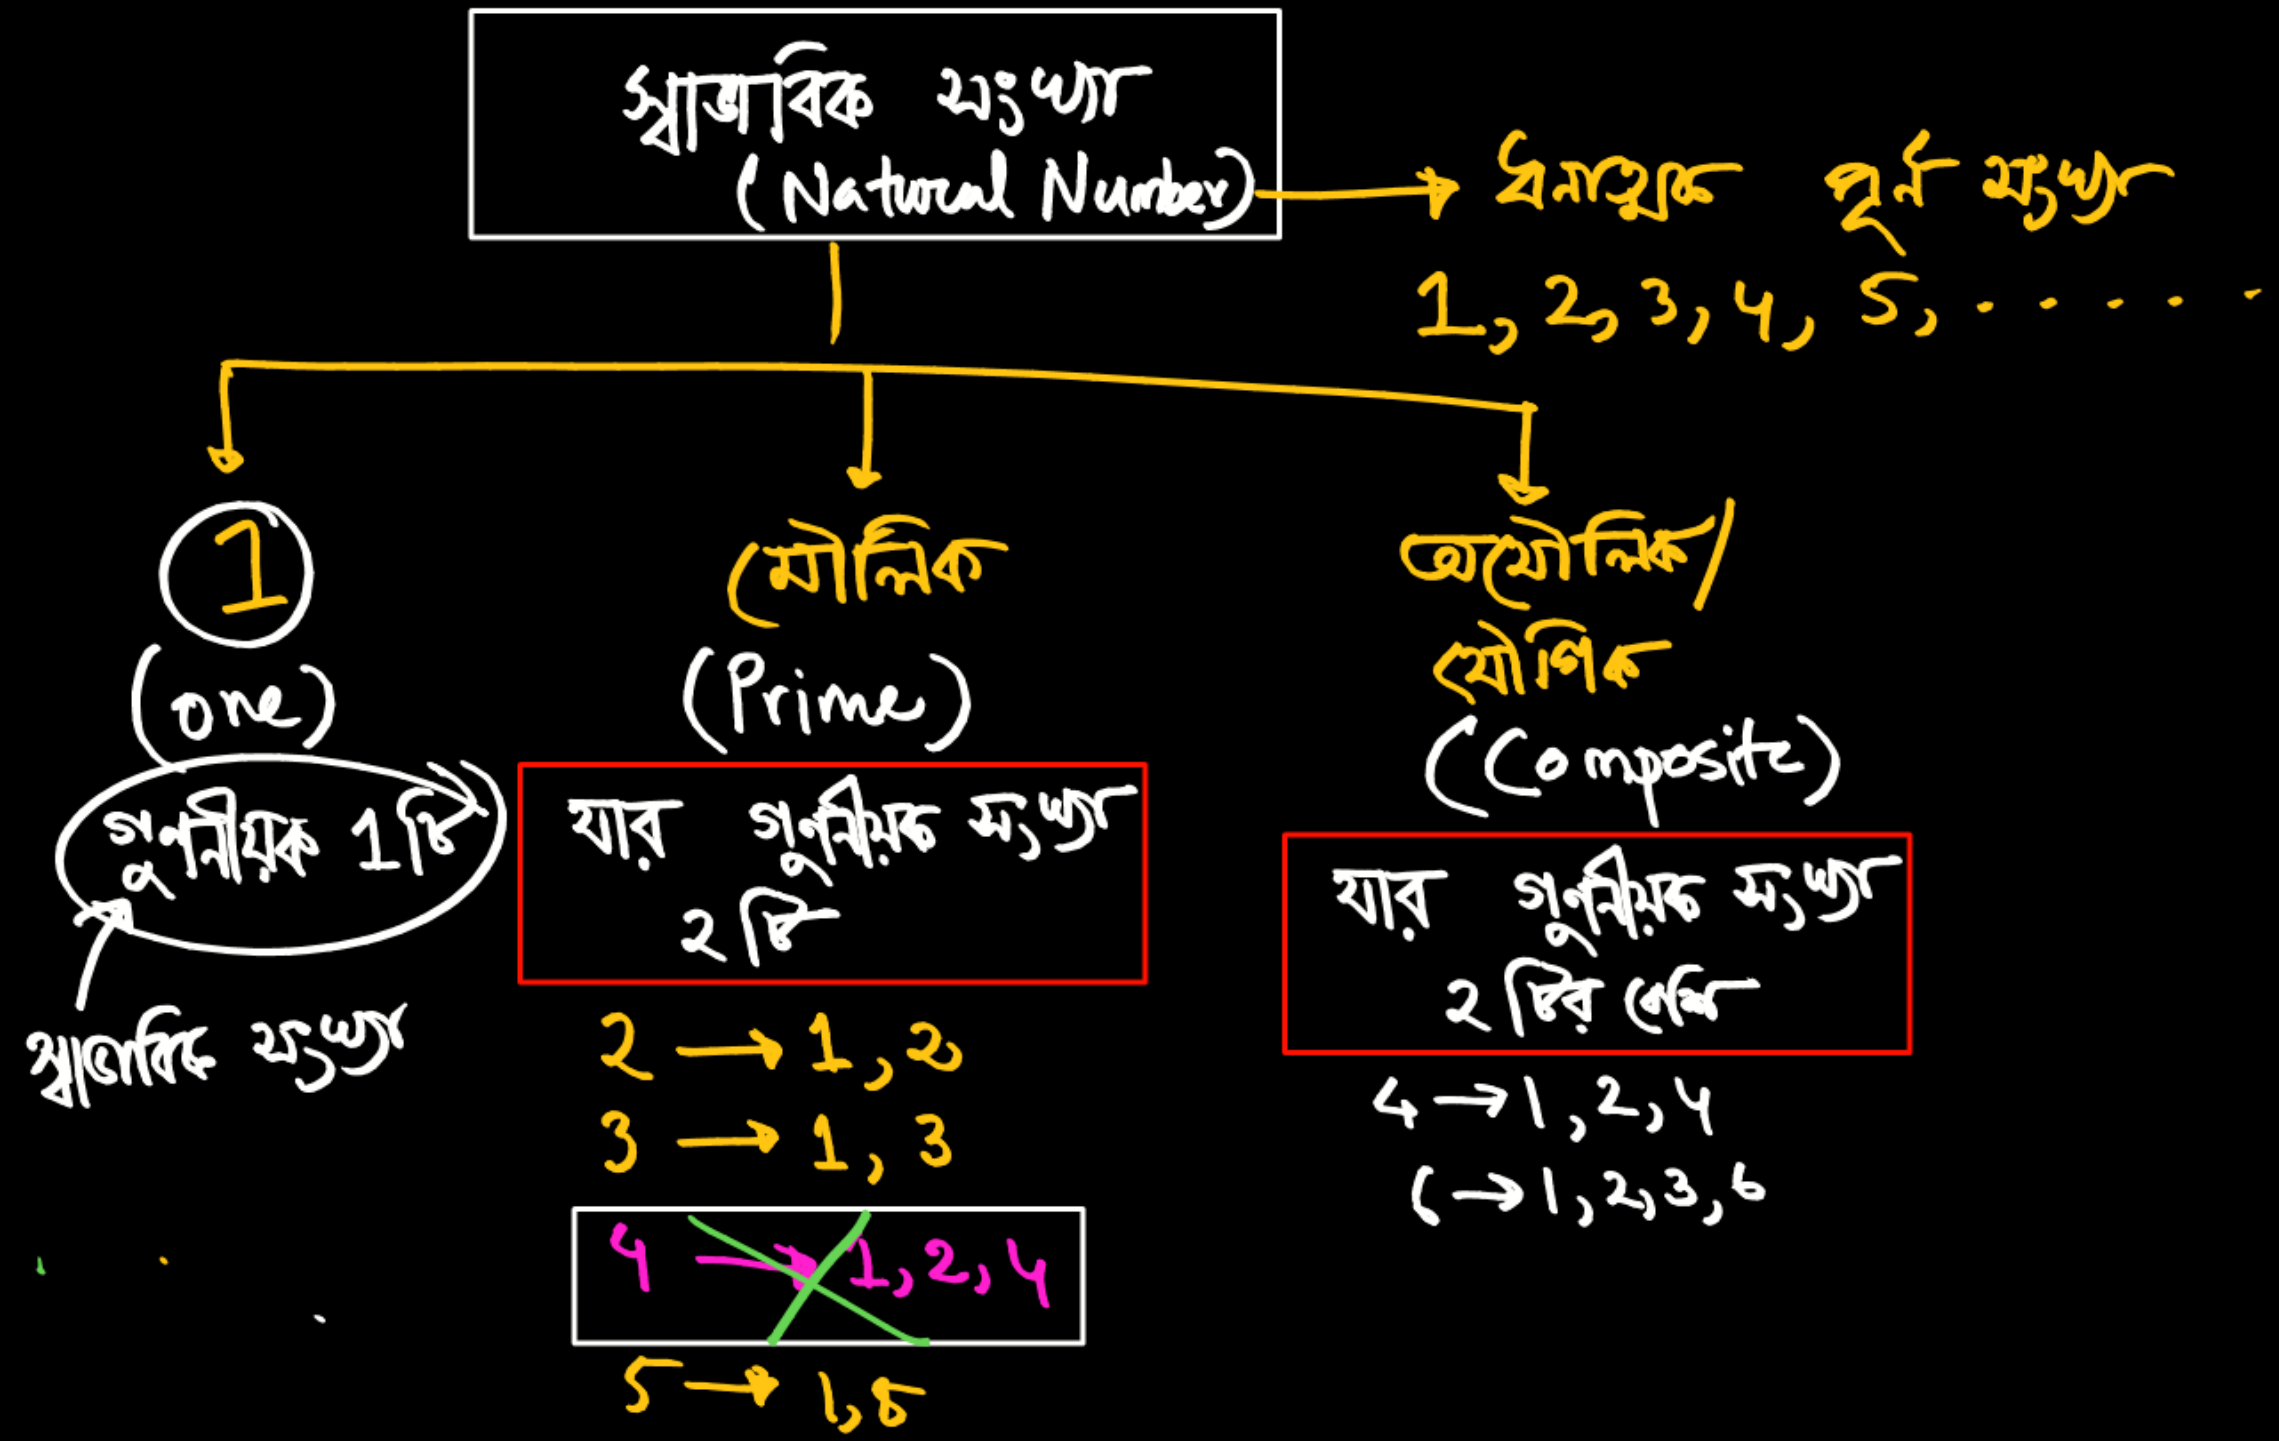 স্বাভাবিক সংখ্যা
(Natural Number)
ধনাত্মক পূর্ন সংখ্যা
1, 2, 3, 4, 5, . . . . .
1
(one)
গুণনীয়ক 1টি
স্বাভাবিক সংখ্যা
মৌলিক
(Prime)
যার গুণনীয়ক সংখ্যা
২ টি
2 → 1, 2
3 → 1, 3
4 → 1, 2, 4
5 → 1, 5
অমৌলিক/
যৌগিক
(Composite)
যার গুণনীয়ক সংখ্যা
২ টির বেশি
4 → 1, 2, 4
→ 1, 2, 3, 6